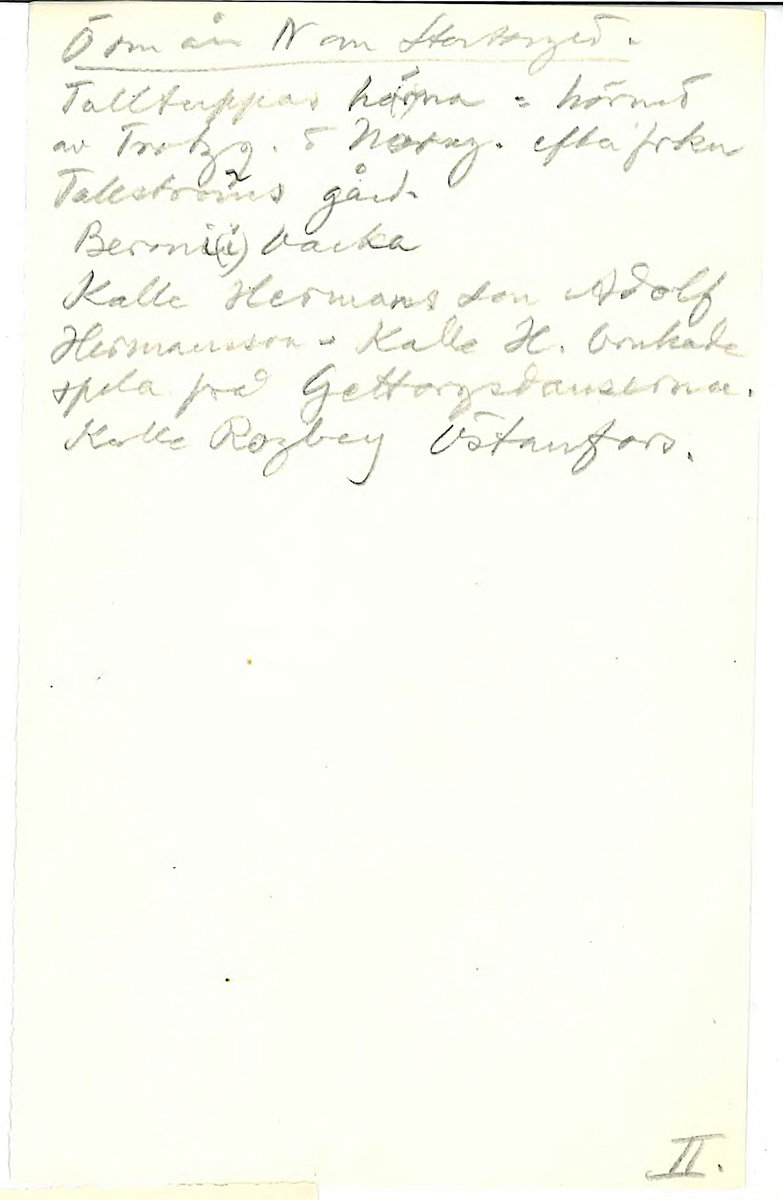 Ö om ån N om Stortorget.
Talltuppas hörna = hörnet
av Trotzg. o Norrg. efter frkn
Tallströms gård.
Beronii(i) backa
Kalle Hermans son Adolf
Hermansson - Kalle H. brukade
spela på Gettorgsdanserna.
Kalle Rozbey Östanfors.
II.